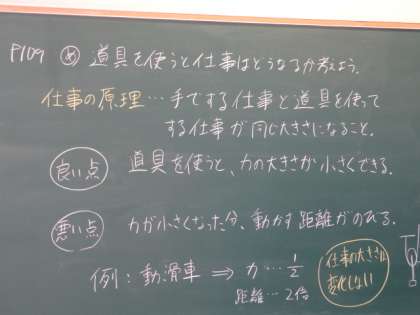 P109 め 道具を使うと仕事はどうなるか考えよう。
仕事の原理…手でする仕事と道具を使って
する仕事が同じ大きさになること。
良い点 道具を使うと、力の大きさが小さくできる。
悪い点 力が小さくなった分、動かす距離がのびる。
例：動滑車 ⇒ 力…1/2
距離…2倍
仕事の大きさは
変化しない